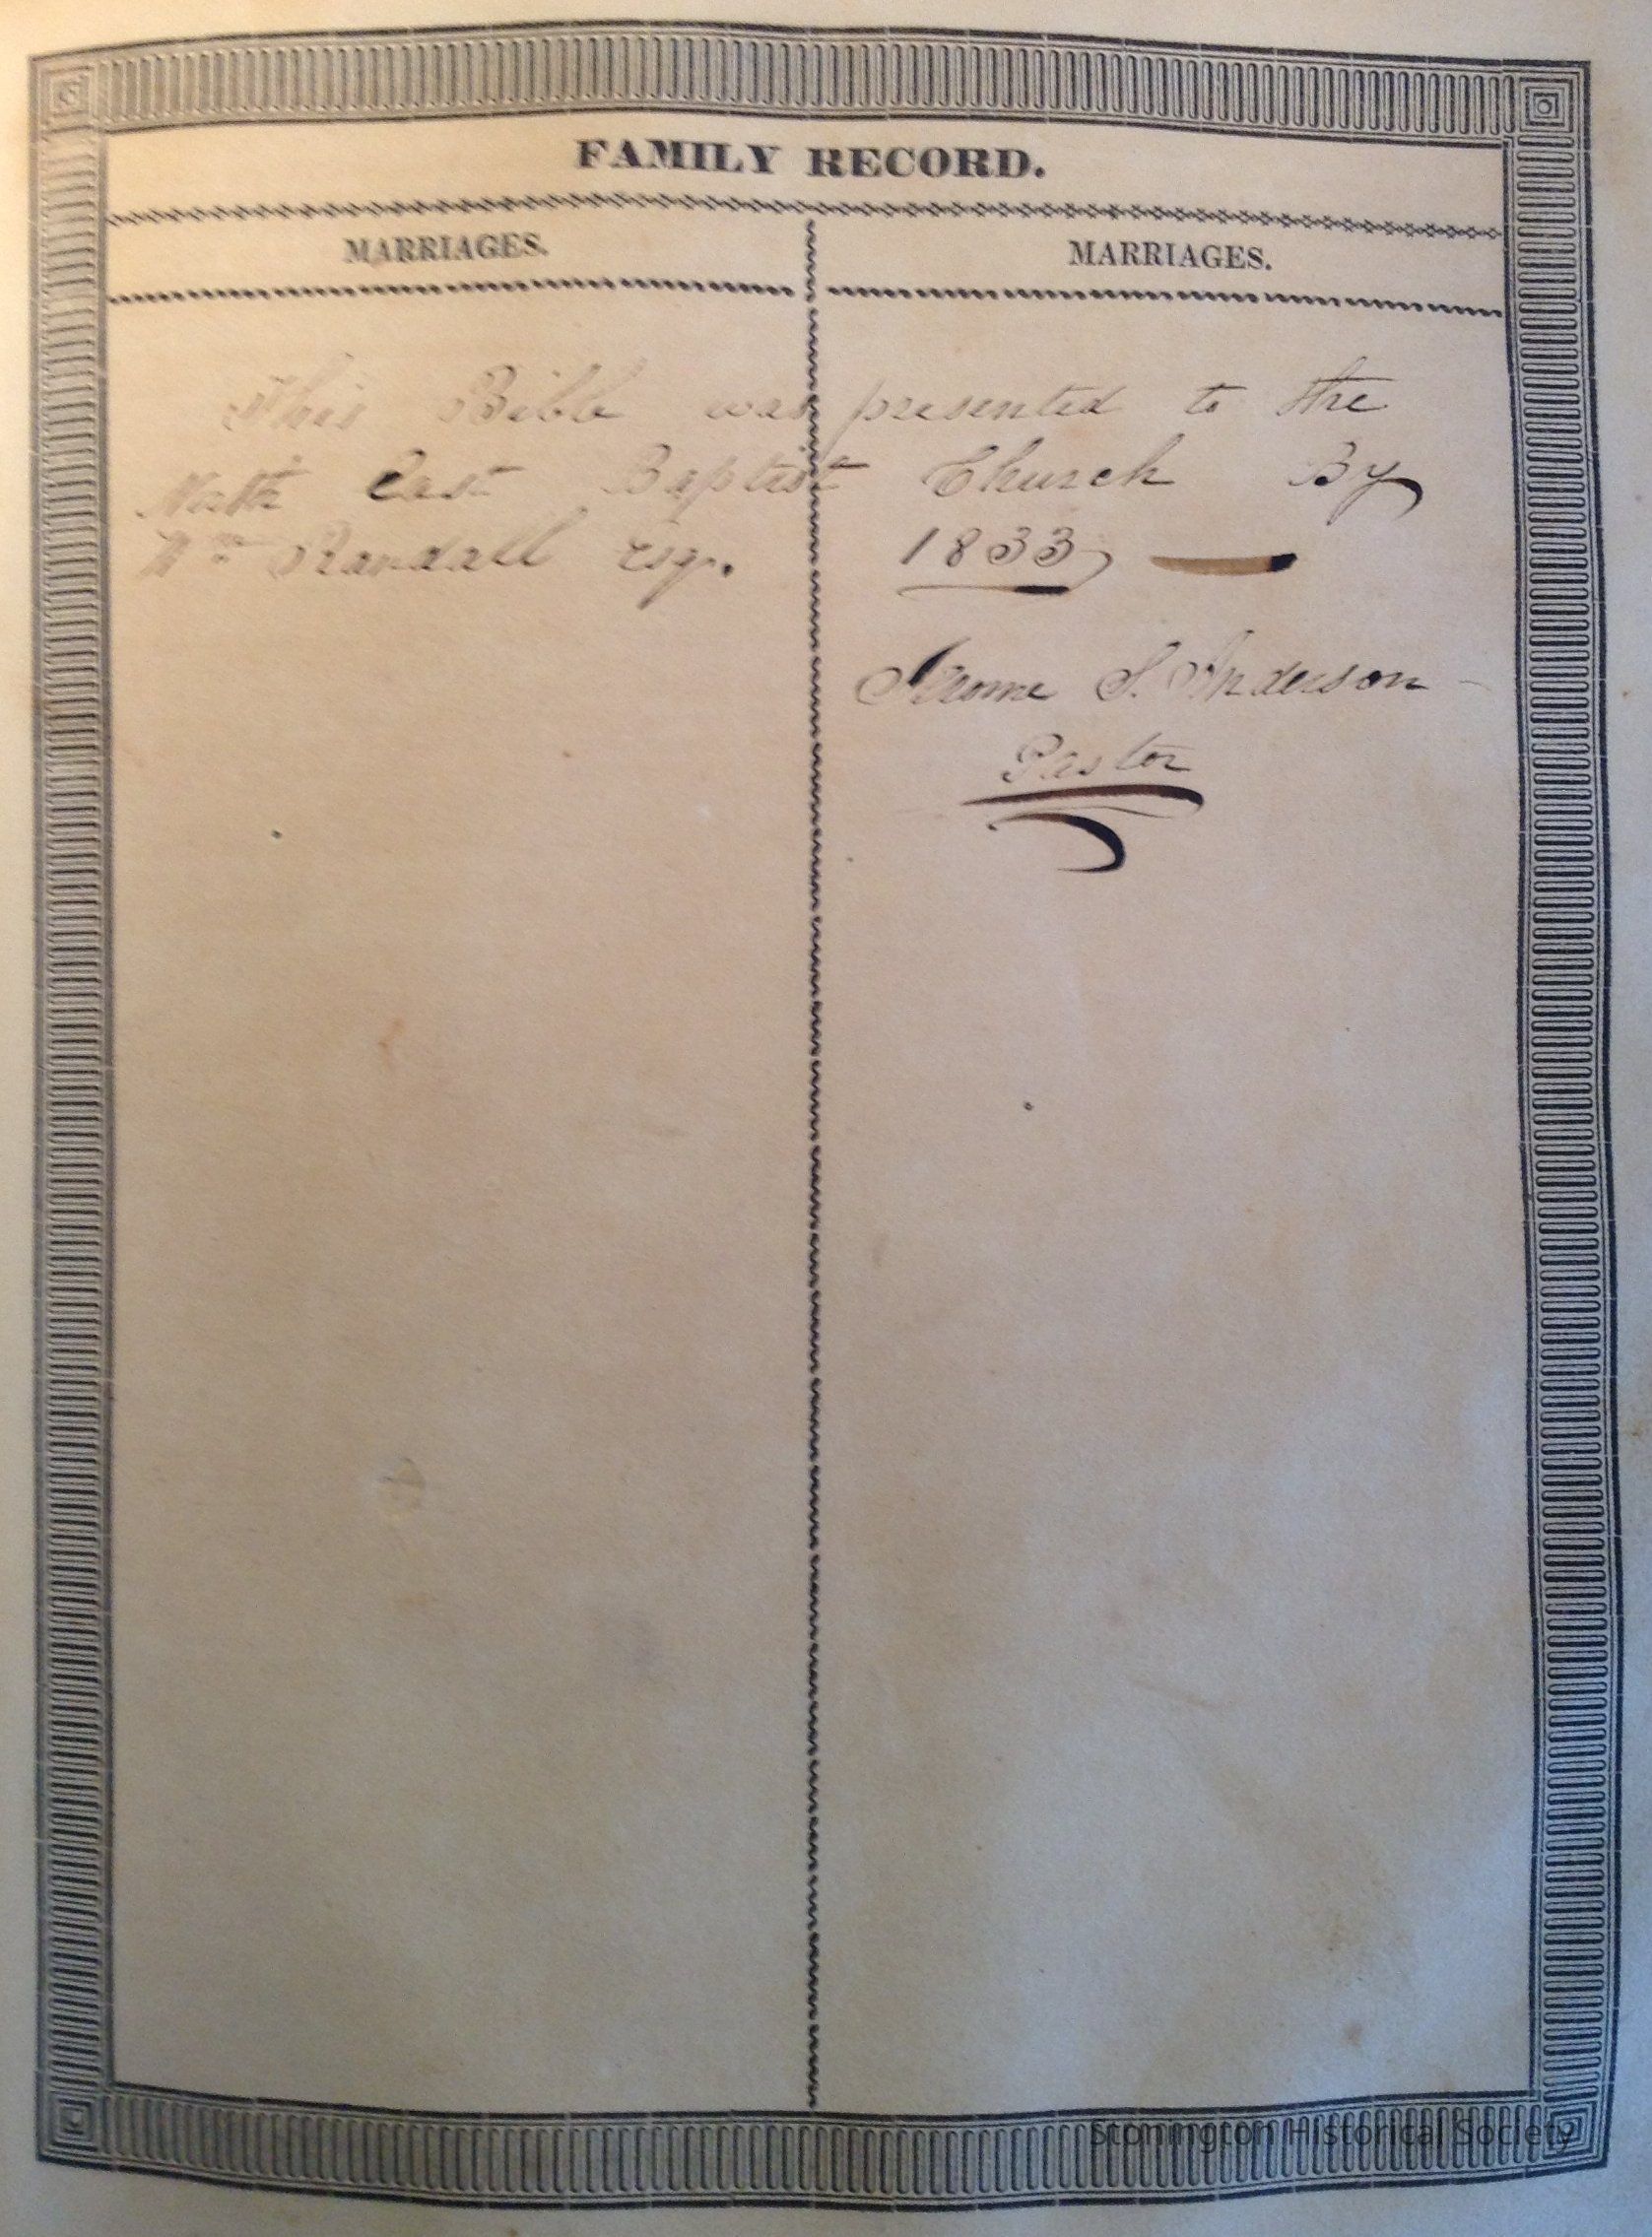 FAMILY RECORD.
MARRIAGES. MARRIAGES.
This Bible was presented to the
North East Baptist Church By
Wm Randall Esq. 1833,
Jerome S. Anderson
Pastor
Stonington Historical Society